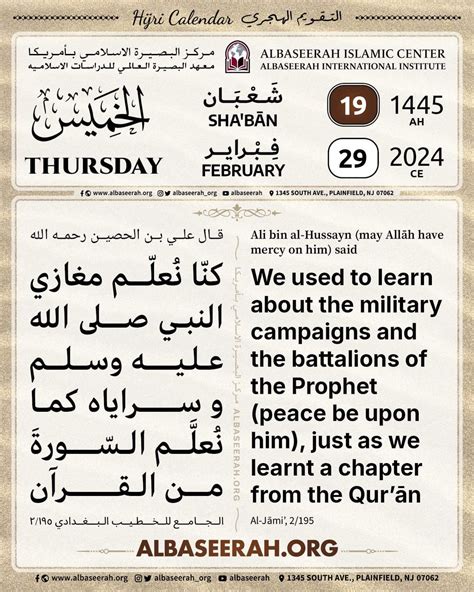 Hijri Calendar التـقـويـم الـهـجـري
مركز البصيرة الاسلامي بأمريكا
معهد البصيرة العالي للدراسات الاسلاميه
ALBASEERAH ISLAMIC CENTER
ALBASEERAH INTERNATIONAL INSTITUTE
الخميس
THURSDAY
شَعْبَان
SHA'BĀN
19
1445
AH
فِبْراير
FEBRUARY
29
2024
CE
www.albaseerah.org albaseerah_org albaseerah 1345 SOUTH AVE., PLAINFIELD, NJ 07062
قال علي بن الحصين رحمه الله
كنّا نُعلّـم مغازي
النبي صلى الله
عليـه وسلـم
و سراياه كما
نُعلَّم السّورةَ
من القـرآن
الجامع للخطيب البغدادي ٢/١٩٥
مركز البصيرة الاسلامي بأمريكا
ALBASEERAH.ORG
Ali bin al-Hussayn (may Allāh have
mercy on him) said
We used to learn
about the military
campaigns and
the battalions of
the Prophet
(peace be upon
him), just as we
learnt a chapter
from the Qur’ān
Al-Jāmi’, 2/195
ALBASEERAH.ORG
www.albaseerah.org albaseerah_org albaseerah 1345 SOUTH AVE., PLAINFIELD, NJ 07062